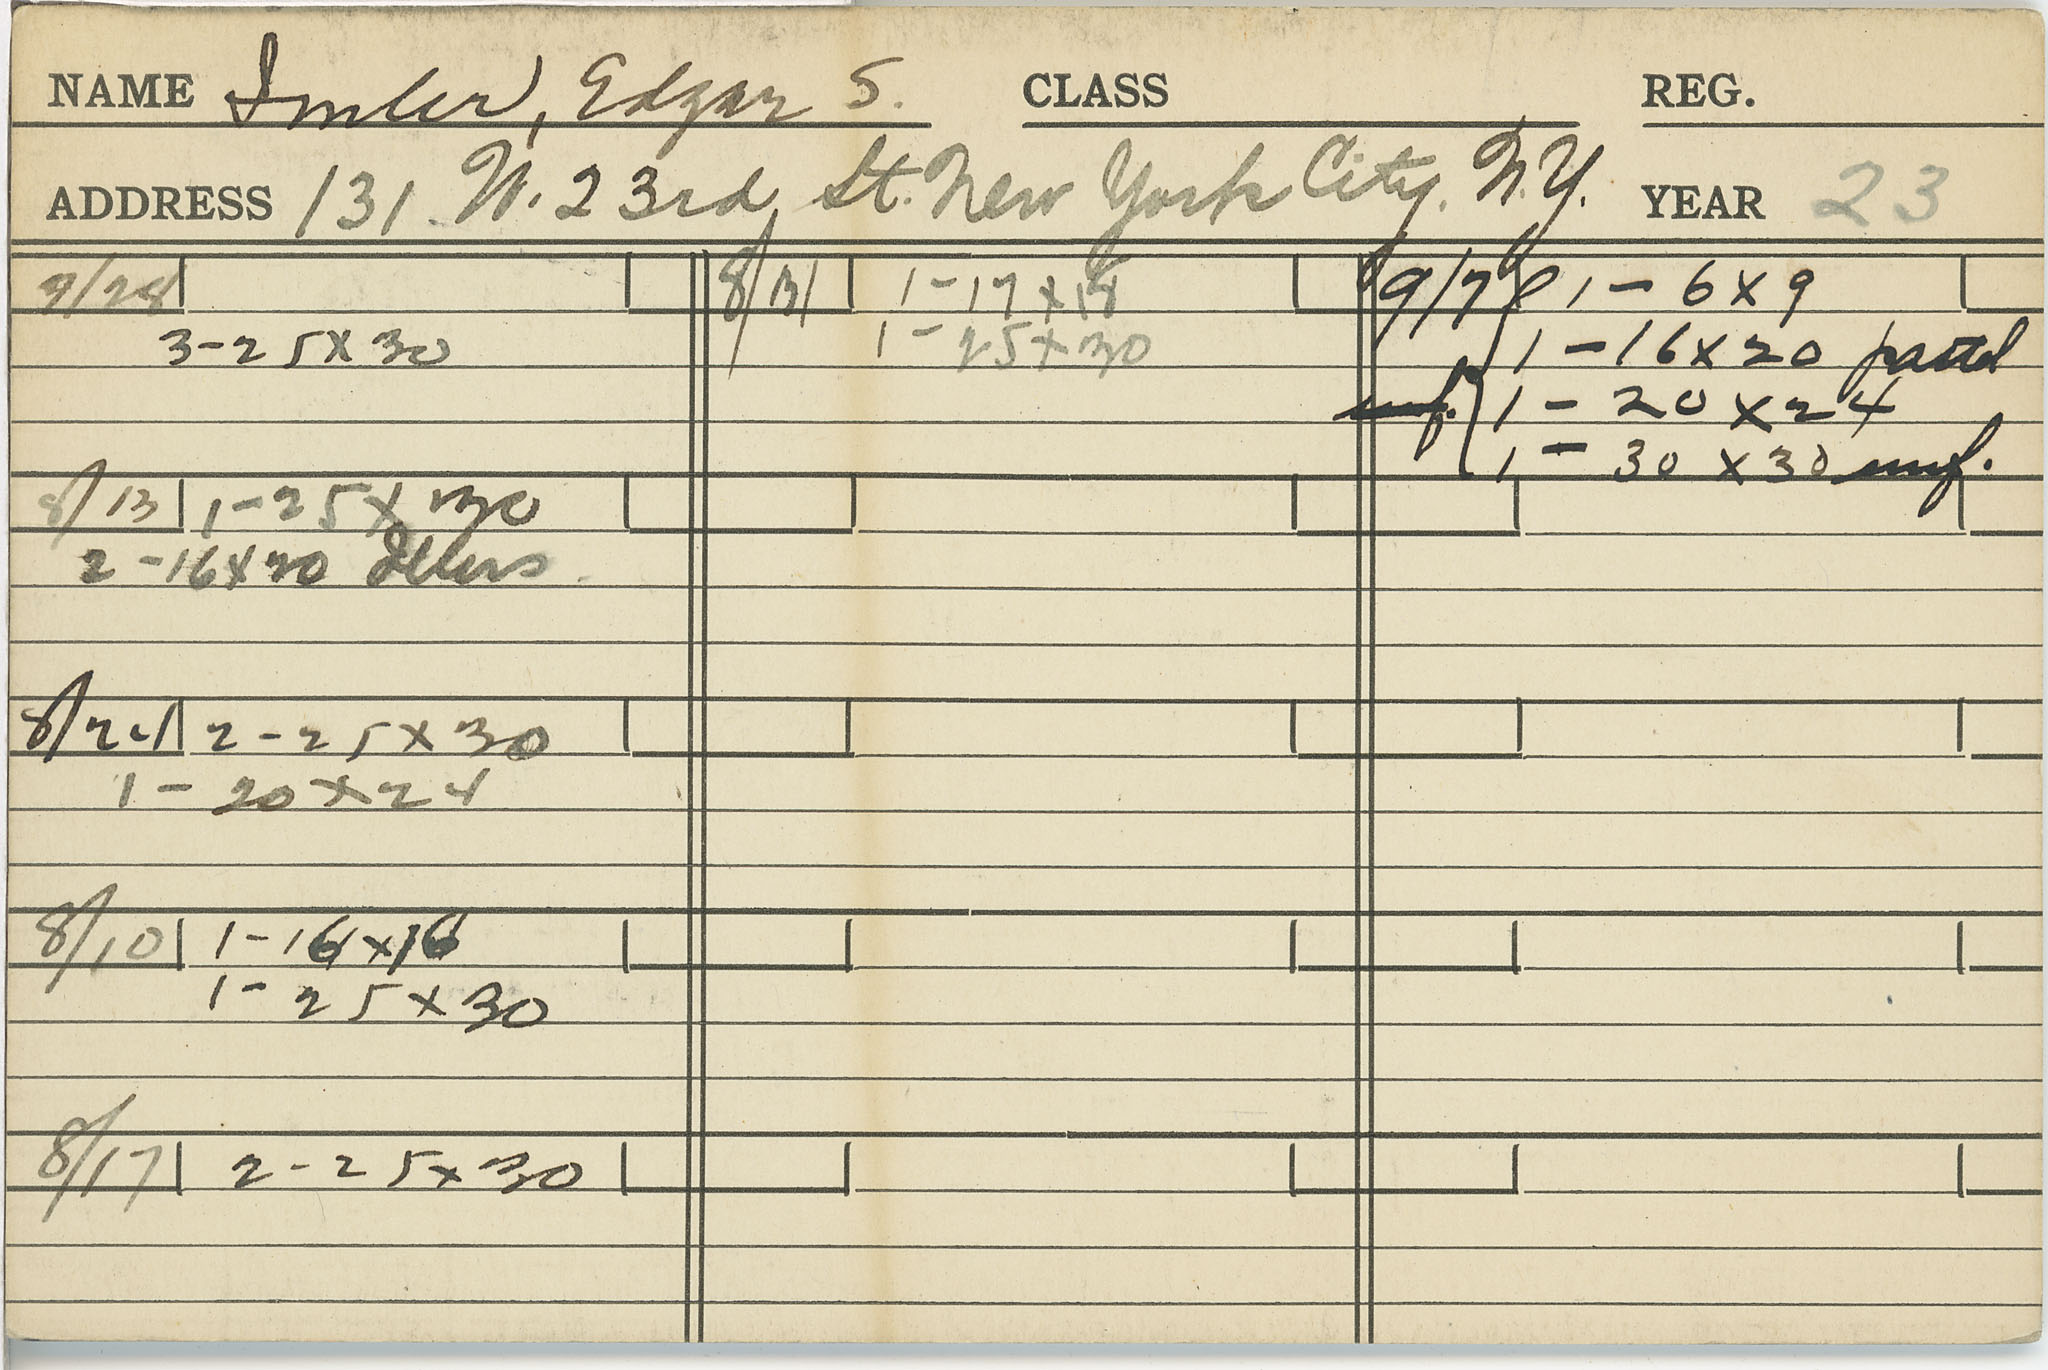 NAME Imler, Edgar S. CLASS REG.
ADDRESS 131 W. 23rd St. New York City. N.Y. YEAR 23
9/28
3-25x30
8/13 1-25x30
2-16x20
8/24 2-25x30
1-20x24
8/10 1-16x16
1-25x30
8/17 2-25x30
8/31 1-17x18
1-25x30
9/7 1-6x9
1-16x20 pastel
unf. 1-20x24
1-30x30 unf.